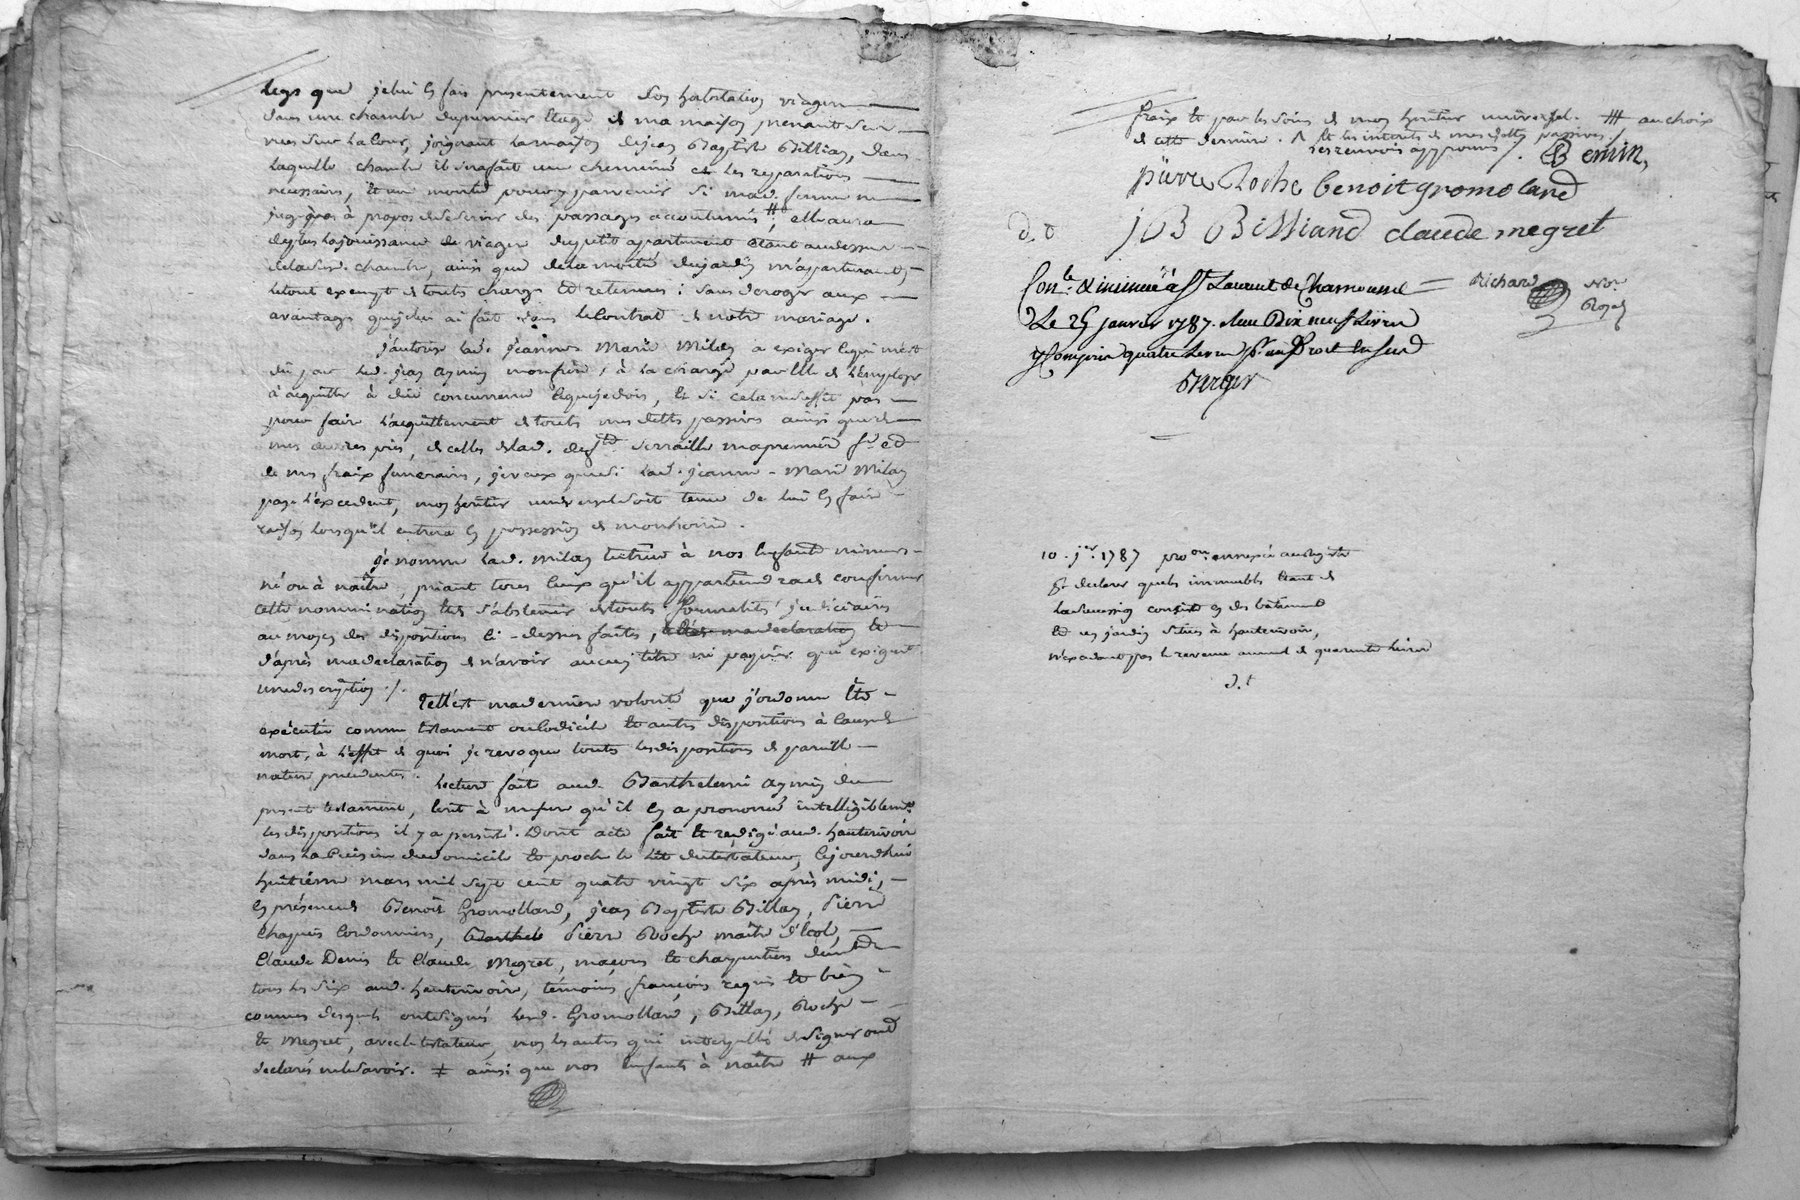 legs que je lui en fais presentement son habitation viagere
dans une chambre du premier etage de ma maison prenant ses
vues sur la cour, joignant la maison de jean Baptiste Billian, dans
laquelle chambre il sera fait une cheminé et les reparations
necessaires, et une montée pour y parvenir si mad. femme ne
juge pas à propos de se servir des passages accoutumés, # elle aura
de plus la jouissance de viager du petit appartement étant au dessus
de lad. chambre, ainsi que de la moitié du jardin m'appartenant,
le tout exempt de touts charges et retenues : sans deroger aux
avantages que je lui ai fait dans le Contrat de notre mariage.
j'autorise lad. jeanne Marie Milan a exiger ce qui m'est
dû par led. jean aymin mon frere, à la charge par elle de l'employer
à acquitter à dûe concurrence ce que je dois, et si cela ne suffit pas
pour faire l'acquittement de touts mes dettes passives ainsi que de
de celles de lad. serraille ma premiere
de mes fraix funeraires, je veux que si lad. jeanne - Marie Milan
paye l'excedent, mon heritier universel soit tenu de lui en faire
raison lorsqu'il entrera en possession de mon hoirie.
je nomme lad. milan tutrice à nos enfants mineurs
né ou à naître, priant tous ceux qu'il appartiendra de confirmer
cette nommination et de s'abstenir de touts formalités judiciaires
au moyen des dispositions ci - dessus faites, et de ma declaration et
d'après ma declaration de n'avoir aucun titre ni papiers qui exigent
une description ./.
Telle est ma derniere volonté que j'ordonne être
exécutée comme testament ou codicile et autres dispositions à cause de
mort, à l'effet de quoi je revoque touts les dispositions de pareille
nature precedentes. Lecture faite aud. Barthelemi aymin du
present testament, écrit à mesure qu'il en a prononcé intelligiblemt.
les dispositions il y a persisté. Dont acte fait et redigé aud. hauterivoir
dans la cuisine du domicile et proche le lit du testateur, cejourdhui
huitiéme mars mil sept cent quatre vingt six après midi,
en présence de Benoît Gromolland, jean Baptiste Billan, Pierre
Chapuis Cordonniers, Barthel Pierre Roche maître d'école,
Claude Denis et Claude Megret, maçons et charpentiers dem.
tous les six aud. hauterivoir, témoins françois requis et bien
connus desquels ont signés lesd. Gromolland, Billan, Roche
et Megret, avec le testateur, non les autres qui interpellés de signer ont
declarés ne le savoir. ‡ ainsi que nos enfants à naître # aux
fraix et par les soins de mon heritier universel. ## au choix
de cette derniere. Λ et les interets de mes dettes passives./.
les renvois approuvés ./. B emin,
pierre Roche benoit gromoland
d. d JB Billiand claude megret
Conle. & insinué à St Laurent de Chamousset Richard Nore.
Royal
Le 25 janvier 1787. Reçu Dix neuf Livres
y Compris quatre Livres pr. un Droit en sus
Berger
10. jer. 1787
declarer que les immeubles étant de
la succession consiste en des bâtiment
et un jardin situés à hauterivoir,
n'excedant pas le revenu annuel de quarante Livres
d.t